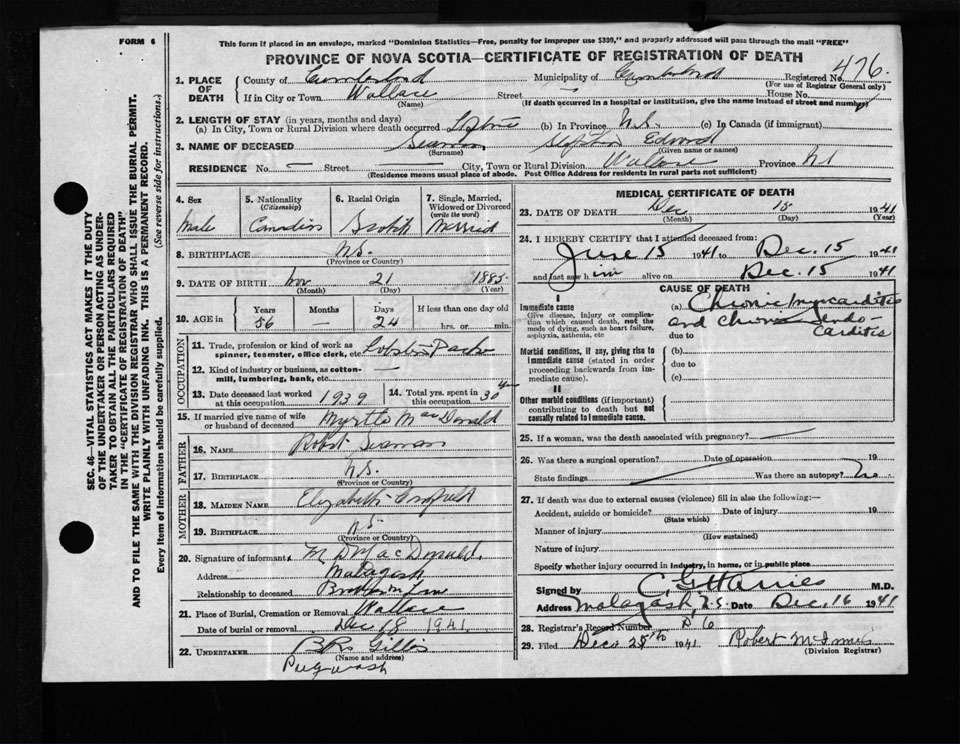 FORM 6
This form if placed in an envelope, marked "Dominion Statistics—Free, penalty for improper use $300," and properly addressed will pass through the mail "FREE"
PROVINCE OF NOVA SCOTIA—CERTIFICATE OF REGISTRATION OF DEATH
1. PLACE OF DEATH
County of Cumberland Municipality of Cumberland Registered No. 476
(For use of Registrar General only)
If in City or Town Wallace Street — House No.
(Name) (If death occurred in a hospital or institution, give the name instead of street and number)
2. LENGTH OF STAY (in years, months and days)
(a) In City, Town or Rural Division where death occurred Lifetime (b) In Province N.S. (c) In Canada (if immigrant)
3. NAME OF DECEASED Seaman Stephen Edward
(Surname) (Given name or names)
RESIDENCE No. — Street City, Town or Rural Division Wallace Province NS
(Residence means usual place of abode. Post Office Address for residents in rural parts not sufficient)
4. Sex
Male
5. Nationality
(Citizenship)
Canadian
6. Racial Origin
Scotch
7. Single, Married, Widowed or Divorced
(write the word)
Married
8. BIRTHPLACE N.S.
(Province or Country)
9. DATE OF BIRTH Nov 21 1885
(Month) (Day) (Year)
10. AGE in Years Months Days If less than one day old
56 — 24 hrs. or min.
OCCUPATION
11. Trade, profession or kind of work as spinner, teamster, office clerk, etc. Lobster Pack
12. Kind of industry or business, as cotton-mill, lumbering, bank, etc. —
13. Date deceased last worked at this occupation 1939
14. Total yrs. spent in this occupation 30 yrs
15. If married give name of wife or husband of deceased Myrtle MacDonald
FATHER
16. NAME Robert Seaman
17. BIRTHPLACE N.S.
(Province or Country)
MOTHER
18. MAIDEN NAME Elizabeth
19. BIRTHPLACE N.S
(Province or Country)
20. Signature of informant M D MacDonald
Address Malagash
Relationship to deceased Brother in law
21. Place of Burial, Cremation or Removal Wallace
Date of burial or removal Dec 18 1941
22. UNDERTAKER Gillis
(Name and address)
Pugwash
MEDICAL CERTIFICATE OF DEATH
23. DATE OF DEATH Dec 15 1941
(Month) (Day) (Year)
24. I HEREBY CERTIFY that I attended deceased from:
June 15 1941 to Dec. 15 1941
and last saw him alive on Dec. 15 1941
CAUSE OF DEATH
I
Immediate cause
Give disease, injury or complication which caused death, not the mode of dying, such as heart failure, asphyxia, asthenia, etc.
(a) Chronic myocarditis
and chronic endo-
carditis
due to
Morbid conditions, if any, giving rise to immediate cause (stated in order proceeding backwards from immediate cause).
(b)
due to
(c)
II
Other morbid conditions (if important) contributing to death but not causally related to immediate cause.
25. If a woman, was the death associated with pregnancy? —
26. Was there a surgical operation? Date of operation 19
State findings Was there an autopsy? No
27. If death was due to external causes (violence) fill in also the following:—
Accident, suicide or homicide? Date of injury 19
(State which)
Manner of injury
(How sustained)
Nature of injury
Specify whether injury occurred in industry, in home, or in public place
Signed by M.D.
Address Malagash, N.S. Date Dec. 16 1941
28. Registrar's Record Number D 6
29. Filed Dec 1941 Robert
(Division Registrar)
SEC. 46—VITAL STATISTICS ACT MAKES IT THE DUTY
OF THE UNDERTAKER OR PERSON ACTING AS UNDER-
TAKER TO OBTAIN ALL THE PARTICULARS REQUIRED
IN THE "CERTIFICATE OF REGISTRATION OF DEATH"
AND TO FILE THE SAME WITH THE DIVISION REGISTRAR WHO SHALL ISSUE THE BURIAL PERMIT.
WRITE PLAINLY WITH UNFADING INK. THIS IS A PERMANENT RECORD.
Every item of information should be carefully supplied. (See reverse side for instructions.)